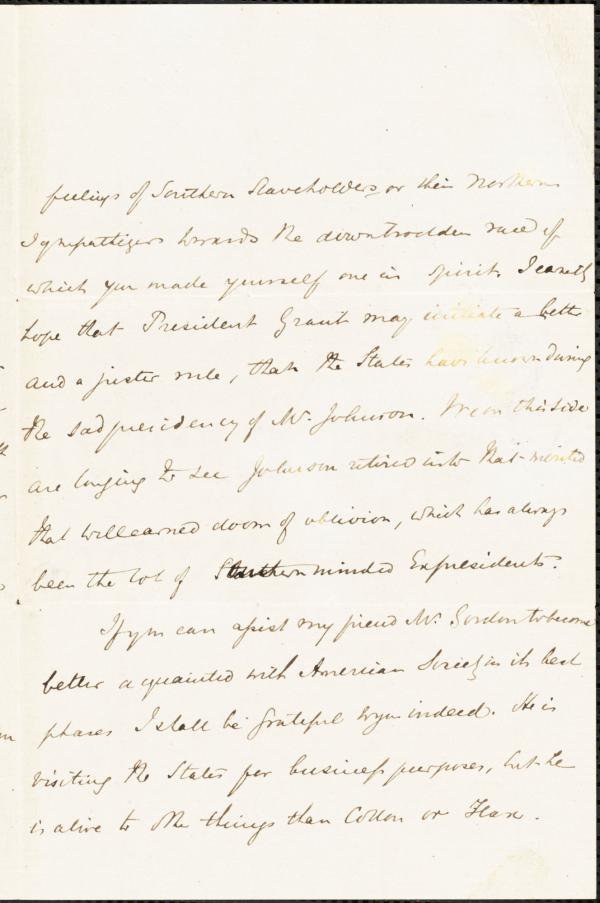 feelings of Southern Slaveholders or their Northern
Sympathizers towards the downtrodden race of
which you made yourself one in spirit. I earnestly
hope that President Grant may initiate a better
and a juster rule, than the States have known during
the sad presidency of Mr. Johnson. We on this side
are longing to see Johnson retired into that merited
that well earned doom of oblivion, which has always
been the lot of Southern minded Expresidents.
If you can assist my friend Mr. Gordon to become
better acquainted with American Society in its best
phases I shall be grateful to you indeed. He is
visiting the States for business purposes, but he
is alive to other things than Cotton or Flax.